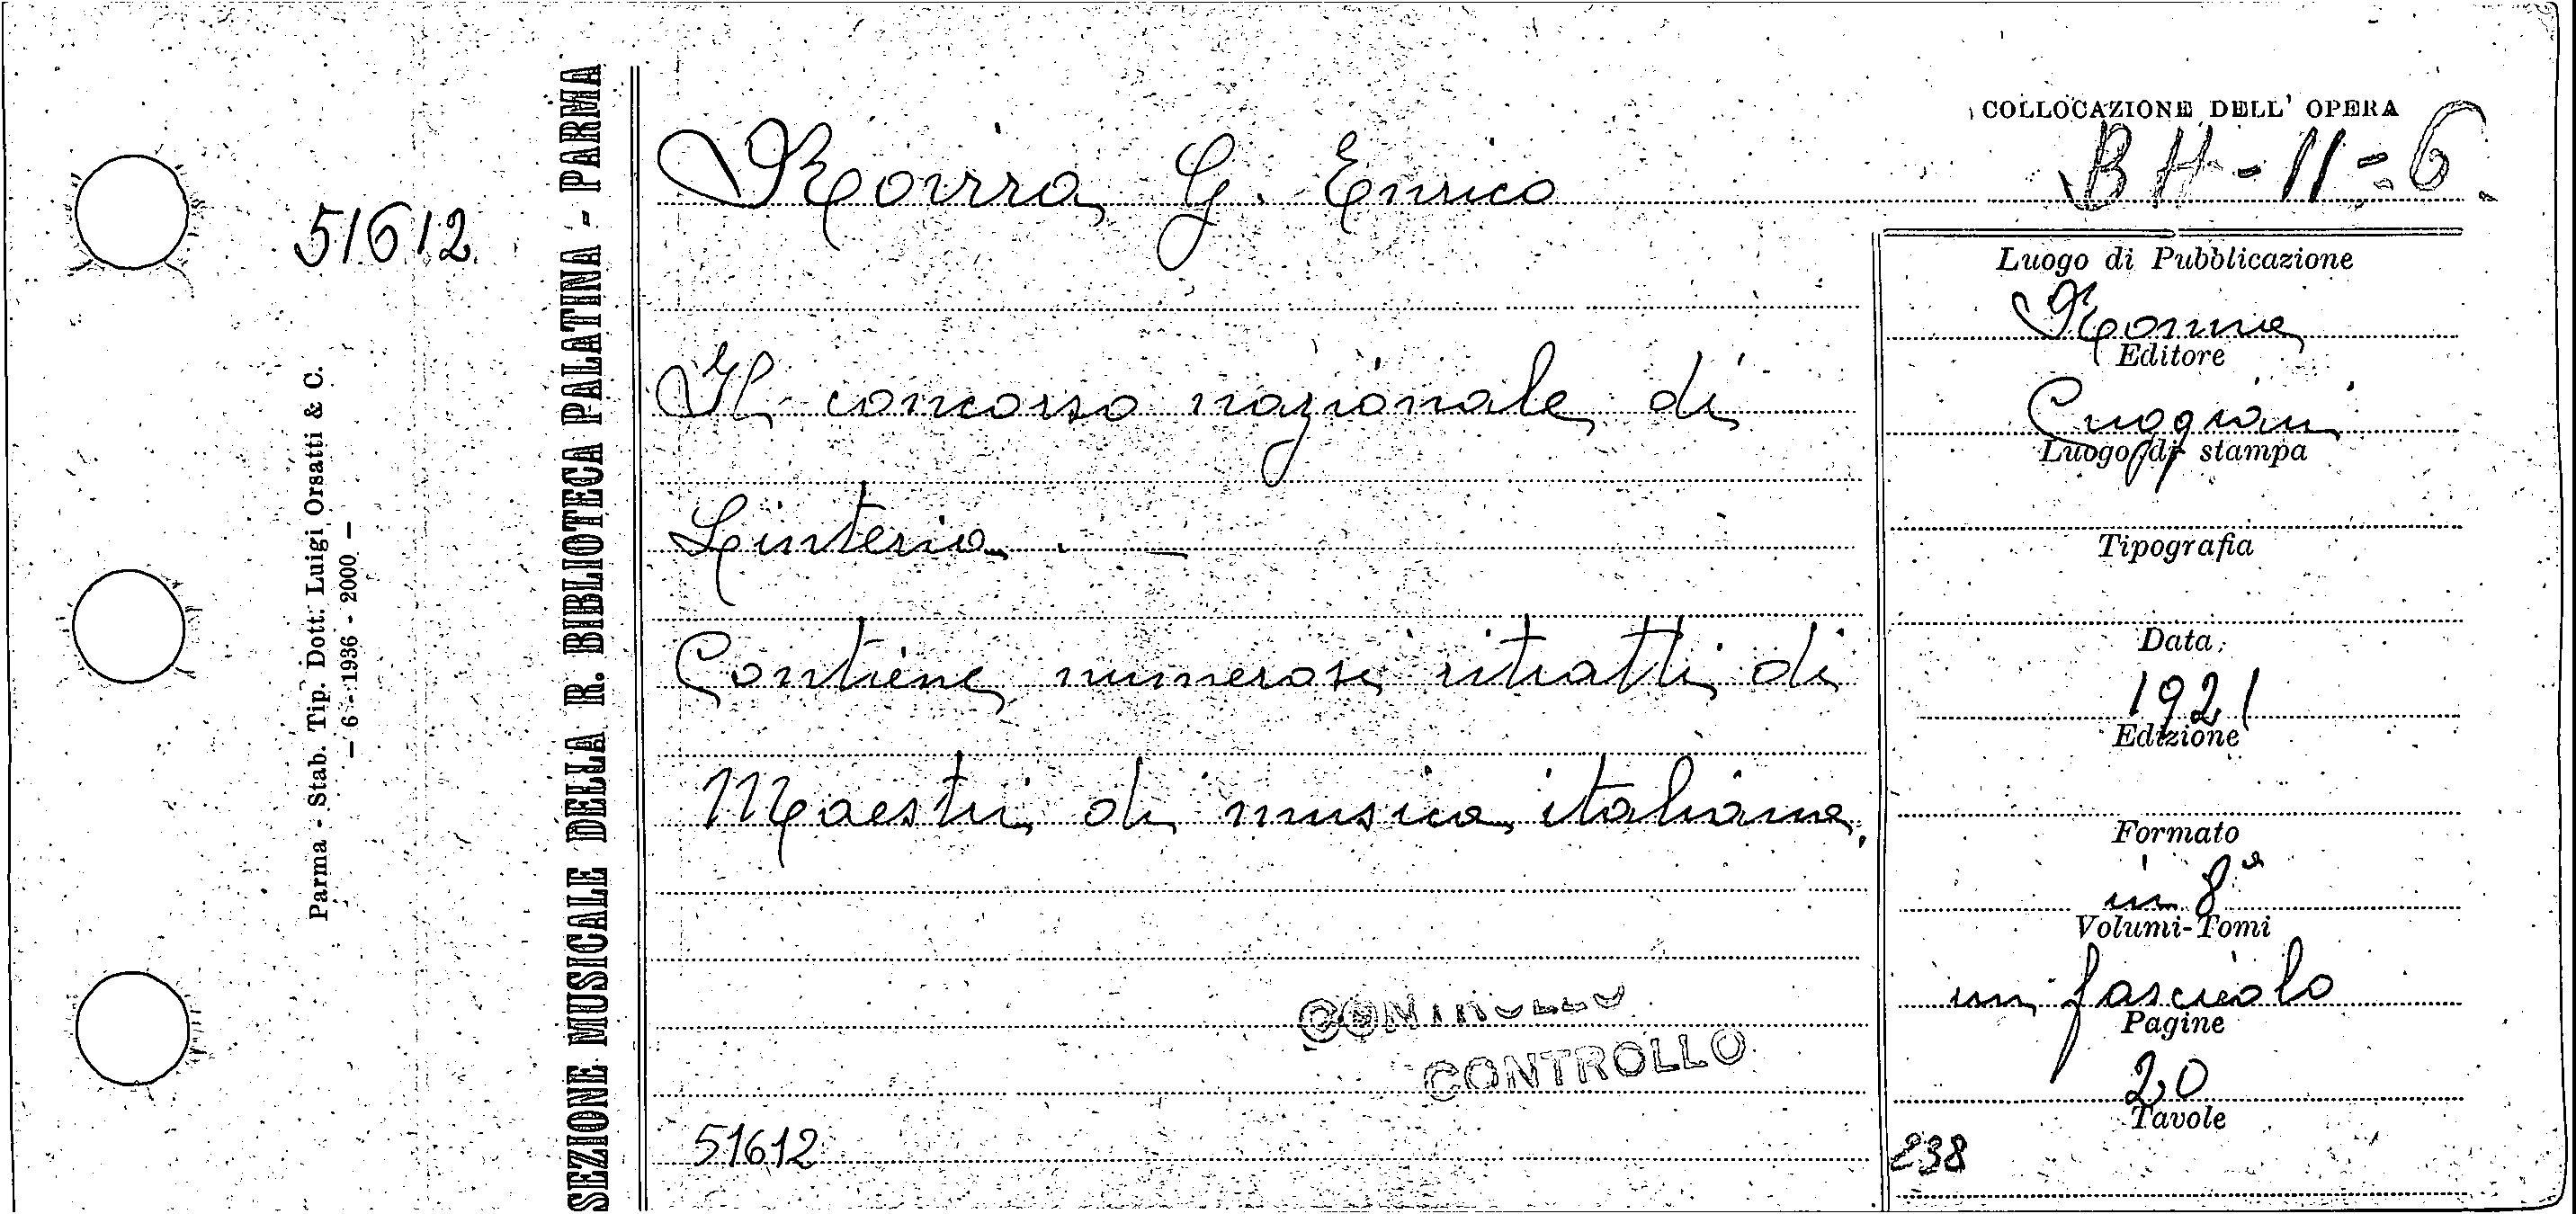 COLLOCAZIONE DELL' OPERA
Rovira G. Enrico
BH-11=6.
51612
SEZIONE MUSICALE DELLA R. BIBLIOTECA PALATINA - PARMA
Parma - Stab. Tip. Dott. Luigi Orsatti & C.
— 6 - 1936 - 2000 —
Il concorso nazionale di
Linteria. —
Contiene numerosi ritratti di
Maestri di musica italiana.
CONTROLLO
CONTROLLO
51612
Luogo di Pubblicazione
Roma
Editore
Cuggiani
Luogo di stampa
Tipografia
Data
1921
Edizione
Formato
in 8º
Volumi-Tomi
un fascicolo
Pagine
20
Tavole
238